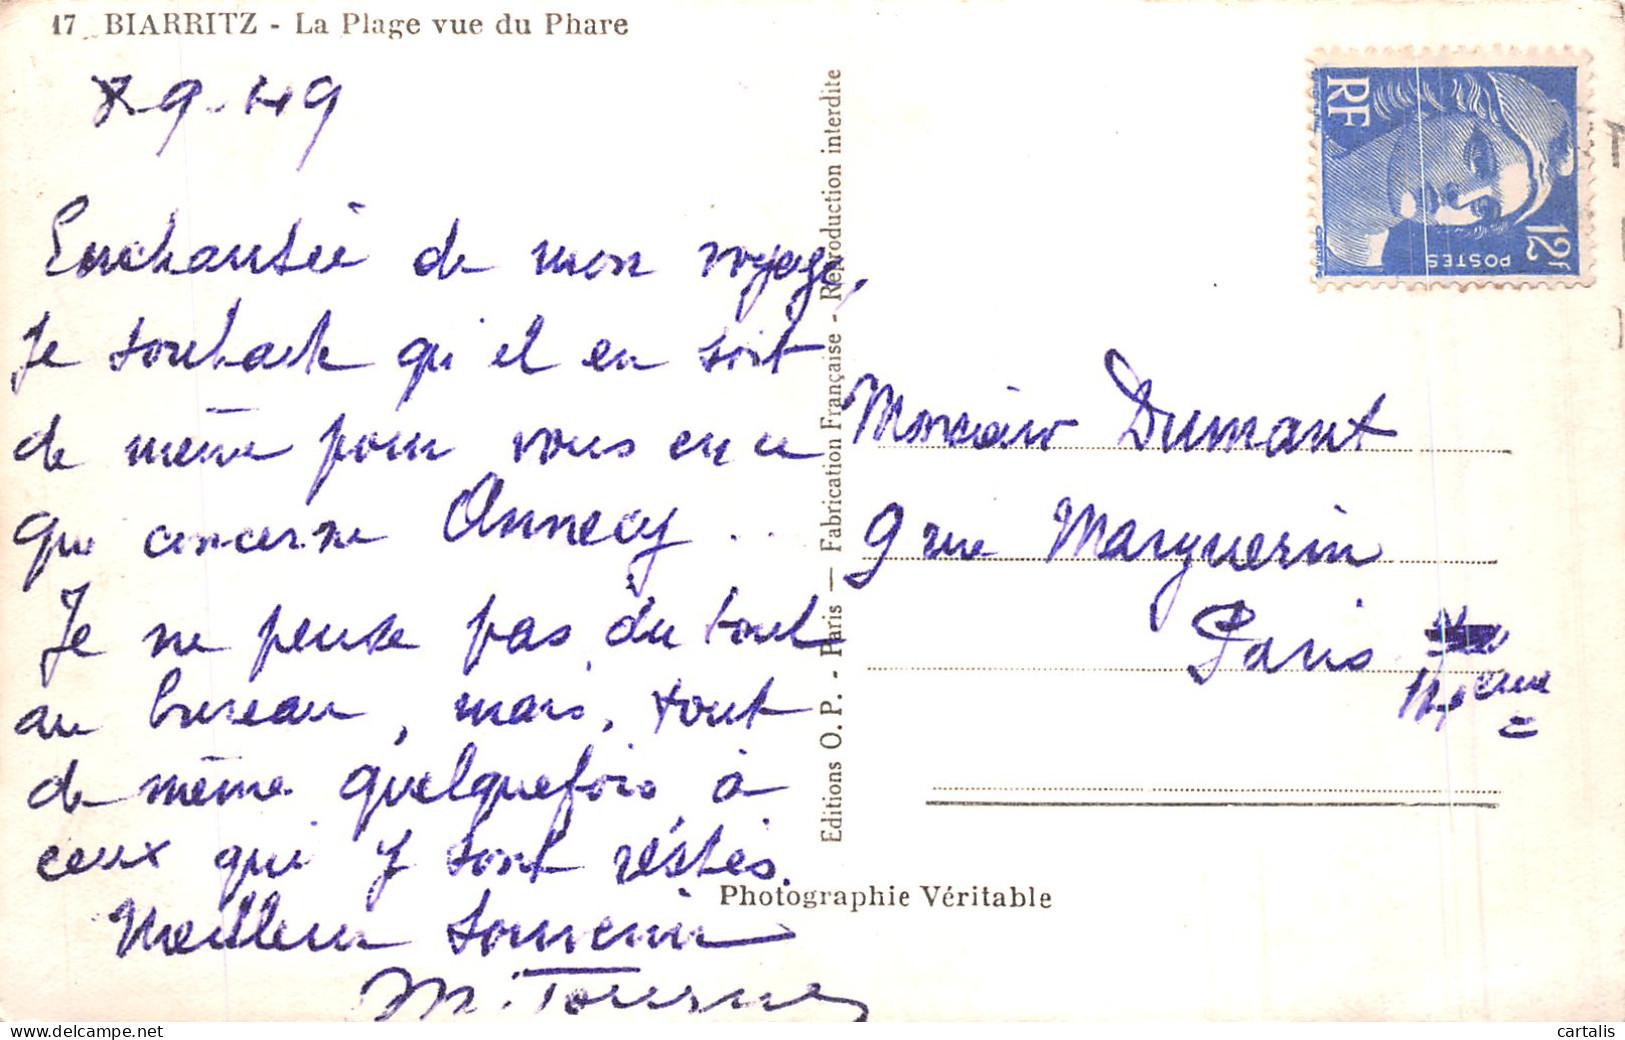 17 BIARRITZ - La Plage vue du Phare
7-9-49
Enchantée de mon voyage,
Je souhaite qu'il en soit
de même pour vous en ce
qui concerne Annecy ..
Je ne pense pas du tout
au bureau, mais, tout
de même quelquefois à
ceux qui y sont réstés.
Meilleur souvenir
M. Tourne
Editions O. P. - Paris — Fabrication Française - Reproduction interdite
Photographie Véritable
RF
POSTES
12f
Monsieur Dumant
9 rue Marguerin
Paris
cartalis